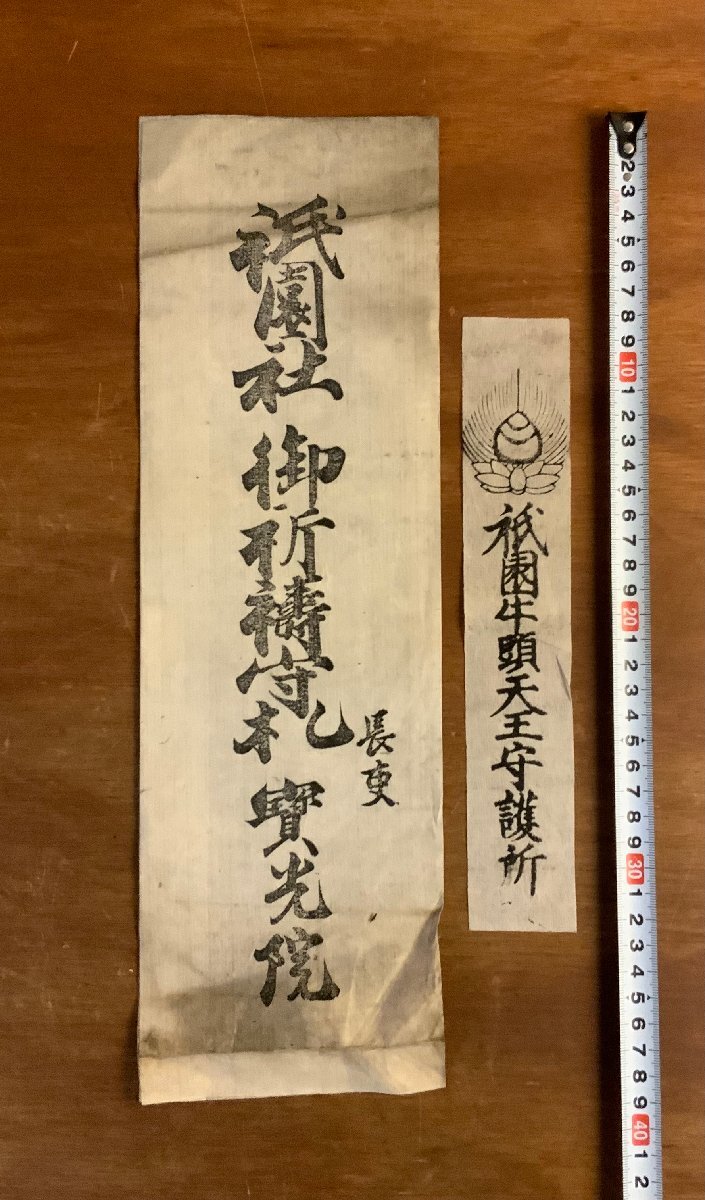 祇園社御祈禱守札
長吏
寳光院
祇園牛頭天王守護所
2 3 4 5 6 7 8 9 10 1 2 3 4 5 6 7 8 9 20 1 2 3 4 5 6 7 8 9 30 1 2 3 4 5 6 7 8 9 40 1 2